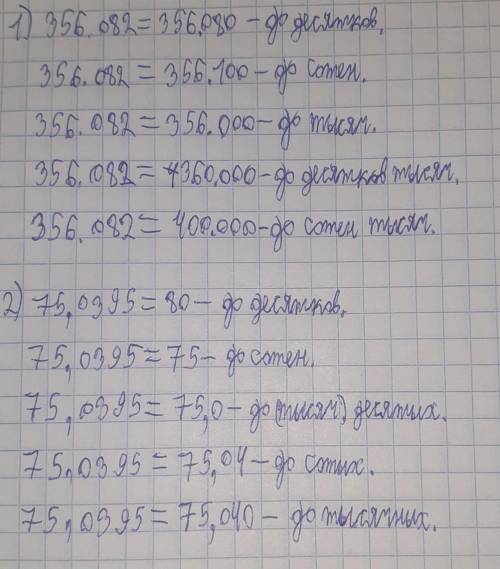 1) 356.082=356.080-до десятков.
356.082=356.100-до сотен.
356.082=356.000-до тысяч.
356.082=360.000-до десятков тысяч.
356.082=400.000-до сотен тысяч.
2) 75,0395=80-до десятков.
75,0395=75-до сотен.
75,0395=75,0-до (тысяч) десятых.
75,0395=75,04-до сотых.
75,0395=75,040-до тысячных.